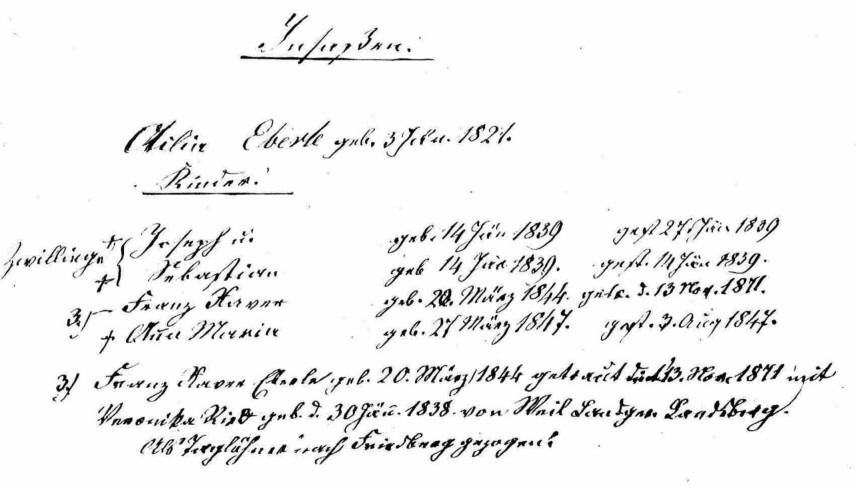 Insaßen:
Otilia Eberle geb. 3 Jän. 1821.
Kinder:
Zwillinge { † Joseph u: geb. 14 Jän 1839 gest 27 Jän 1839
† Sebastian geb 14 Jän 1839. gest. 14 Jän 1839.
3) – Franz Xaver geb. 20. März 1844. getr. d. 13 Nov. 1871.
† Anna Maria geb. 27 März 1847. gest. 3. Aug 1847.
3) Franz Xaver Eberle geb. 20. März 1844 getraut 13. Nov. 1871 mit
Veronika geb. d. 30 Jän. 1838. von Weil Landger. Landsberg.
Als Taglöhner nach Friedberg gezogen.